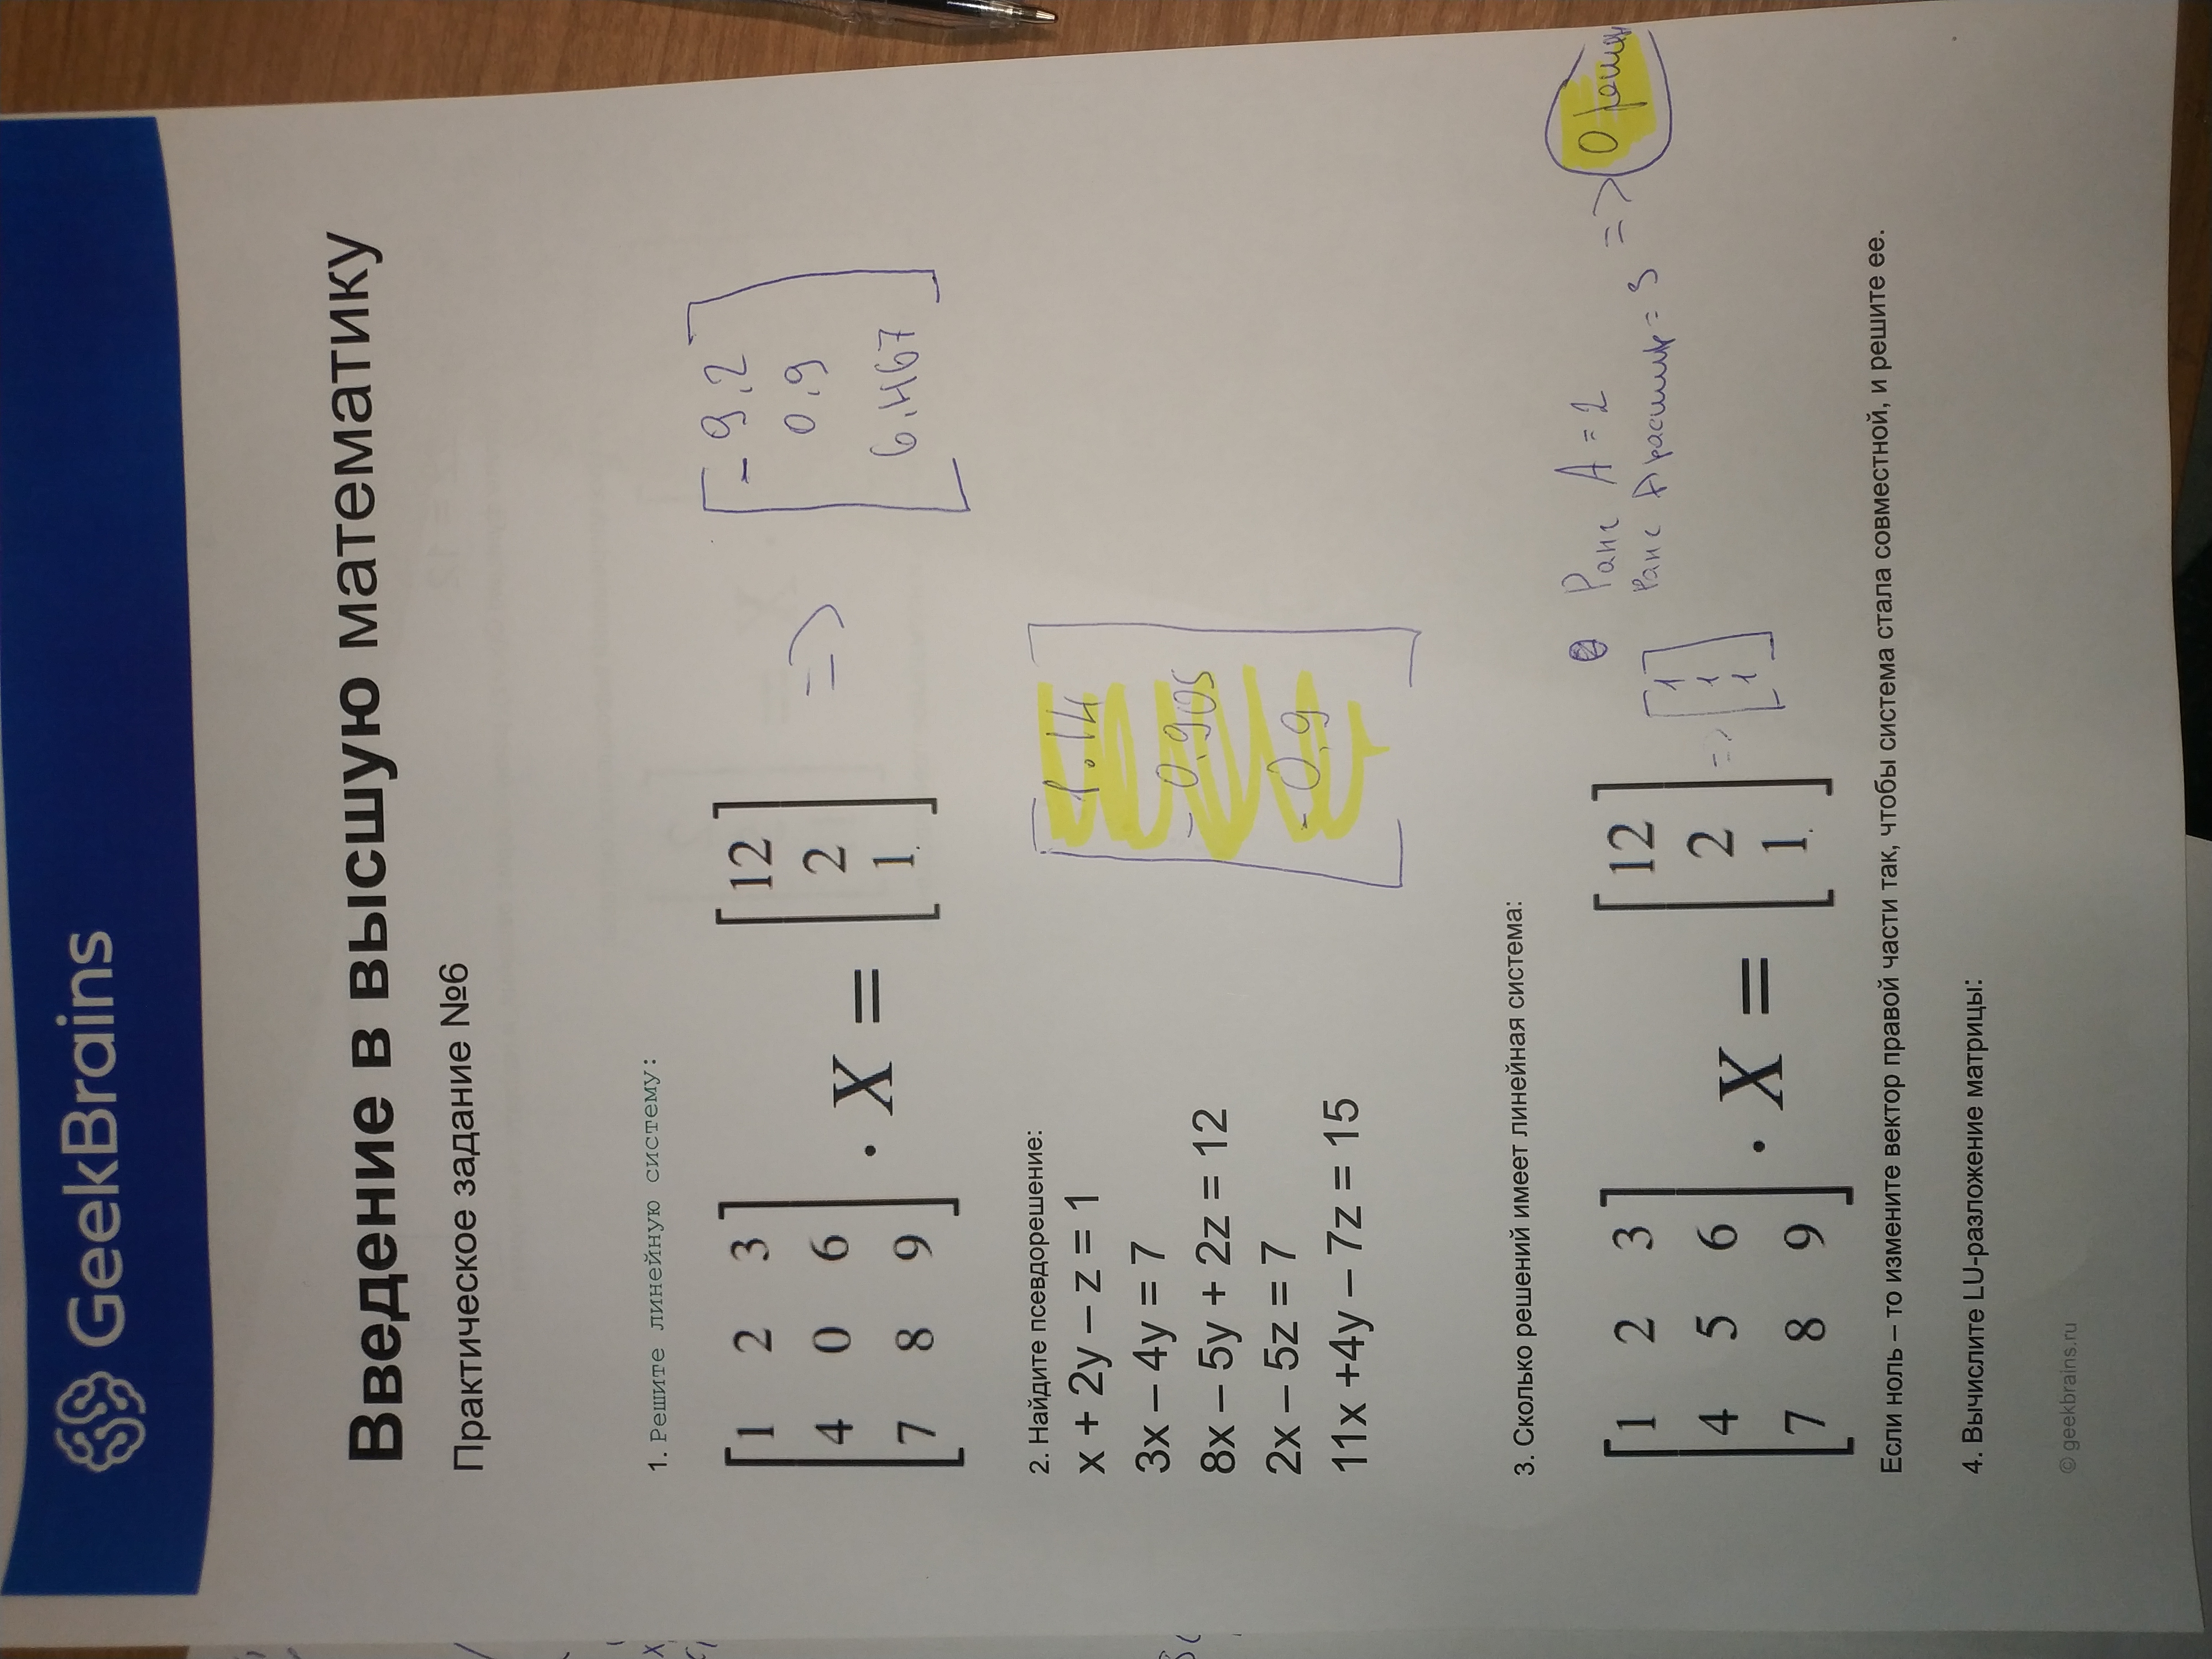 GeekBrains
Введение в высшую математику
Практическое задание №6
1. Решите линейную систему:
1 2 3
4 0 6
7 8 9
· X =
12
2
1
=>
- 9,2
0,9
6,467
2. Найдите псевдорешение:
x + 2y – z = 1
3x – 4y = 7
8x – 5y + 2z = 12
2x – 5z = 7
11x +4y – 7z = 15
1.14
- 0,905
- 0,9
3. Сколько решений имеет линейная система:
1 2 3
4 5 6
7 8 9
· X =
12
2
1
=>
1
1
1
Ранг A = 2
Ранг A расшир = 3
=> 0 решен
Если ноль – то измените вектор правой части так, чтобы система стала совместной, и решите ее.
4. Вычислите LU-разложение матрицы:
© geekbrains.ru